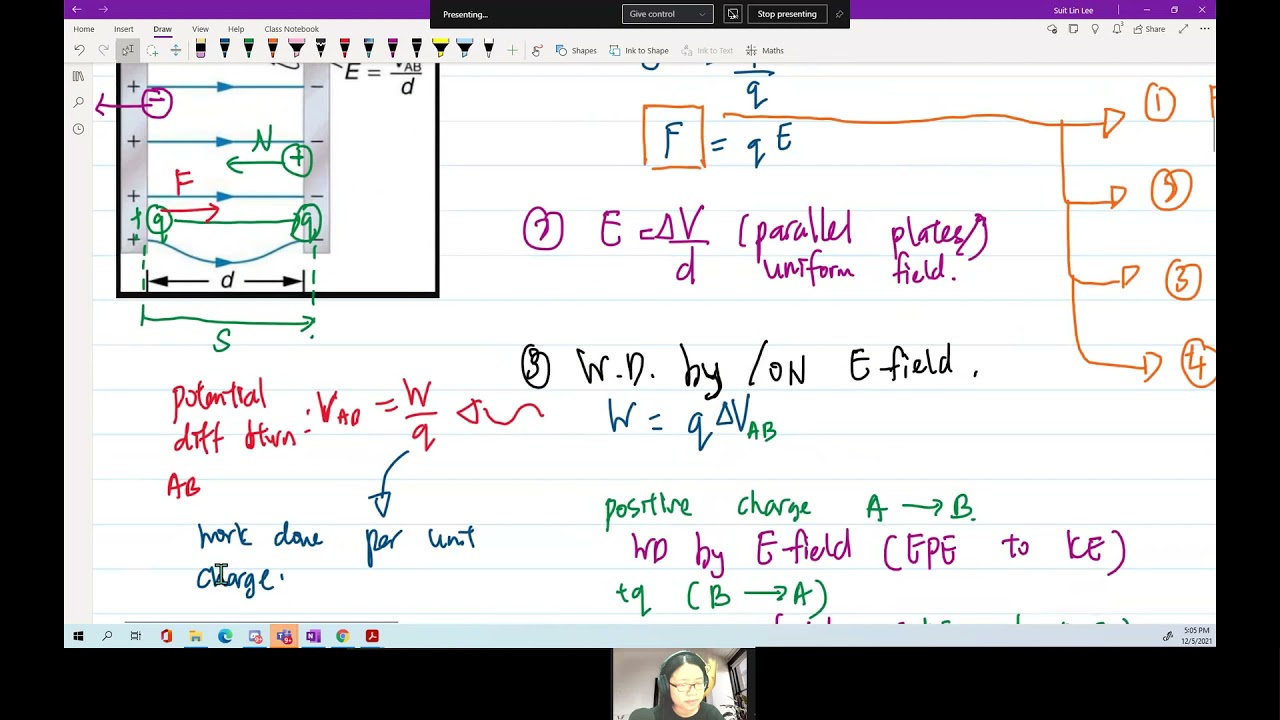 Presenting...
Give control
Stop presenting
Suit Lin Lee
Home Insert Draw View Help Class Notebook
Share
Shapes
Ink to Shape
Ink to Text
Maths
E = VAB/d
+ − −
N +
F
+ q q
d
S
q
F = qE
①
② E = ΔV/d (parallel plates/
uniform field.)
③
④
③ W.D. by /ON E field.
W = qΔVAB
potential
diff btwn : VAB = W/q
AB
work done per unit
charge.
positive charge A → B
WD by E field (EPE to KE)
+q (B → A)
5:05 PM
12/5/2021